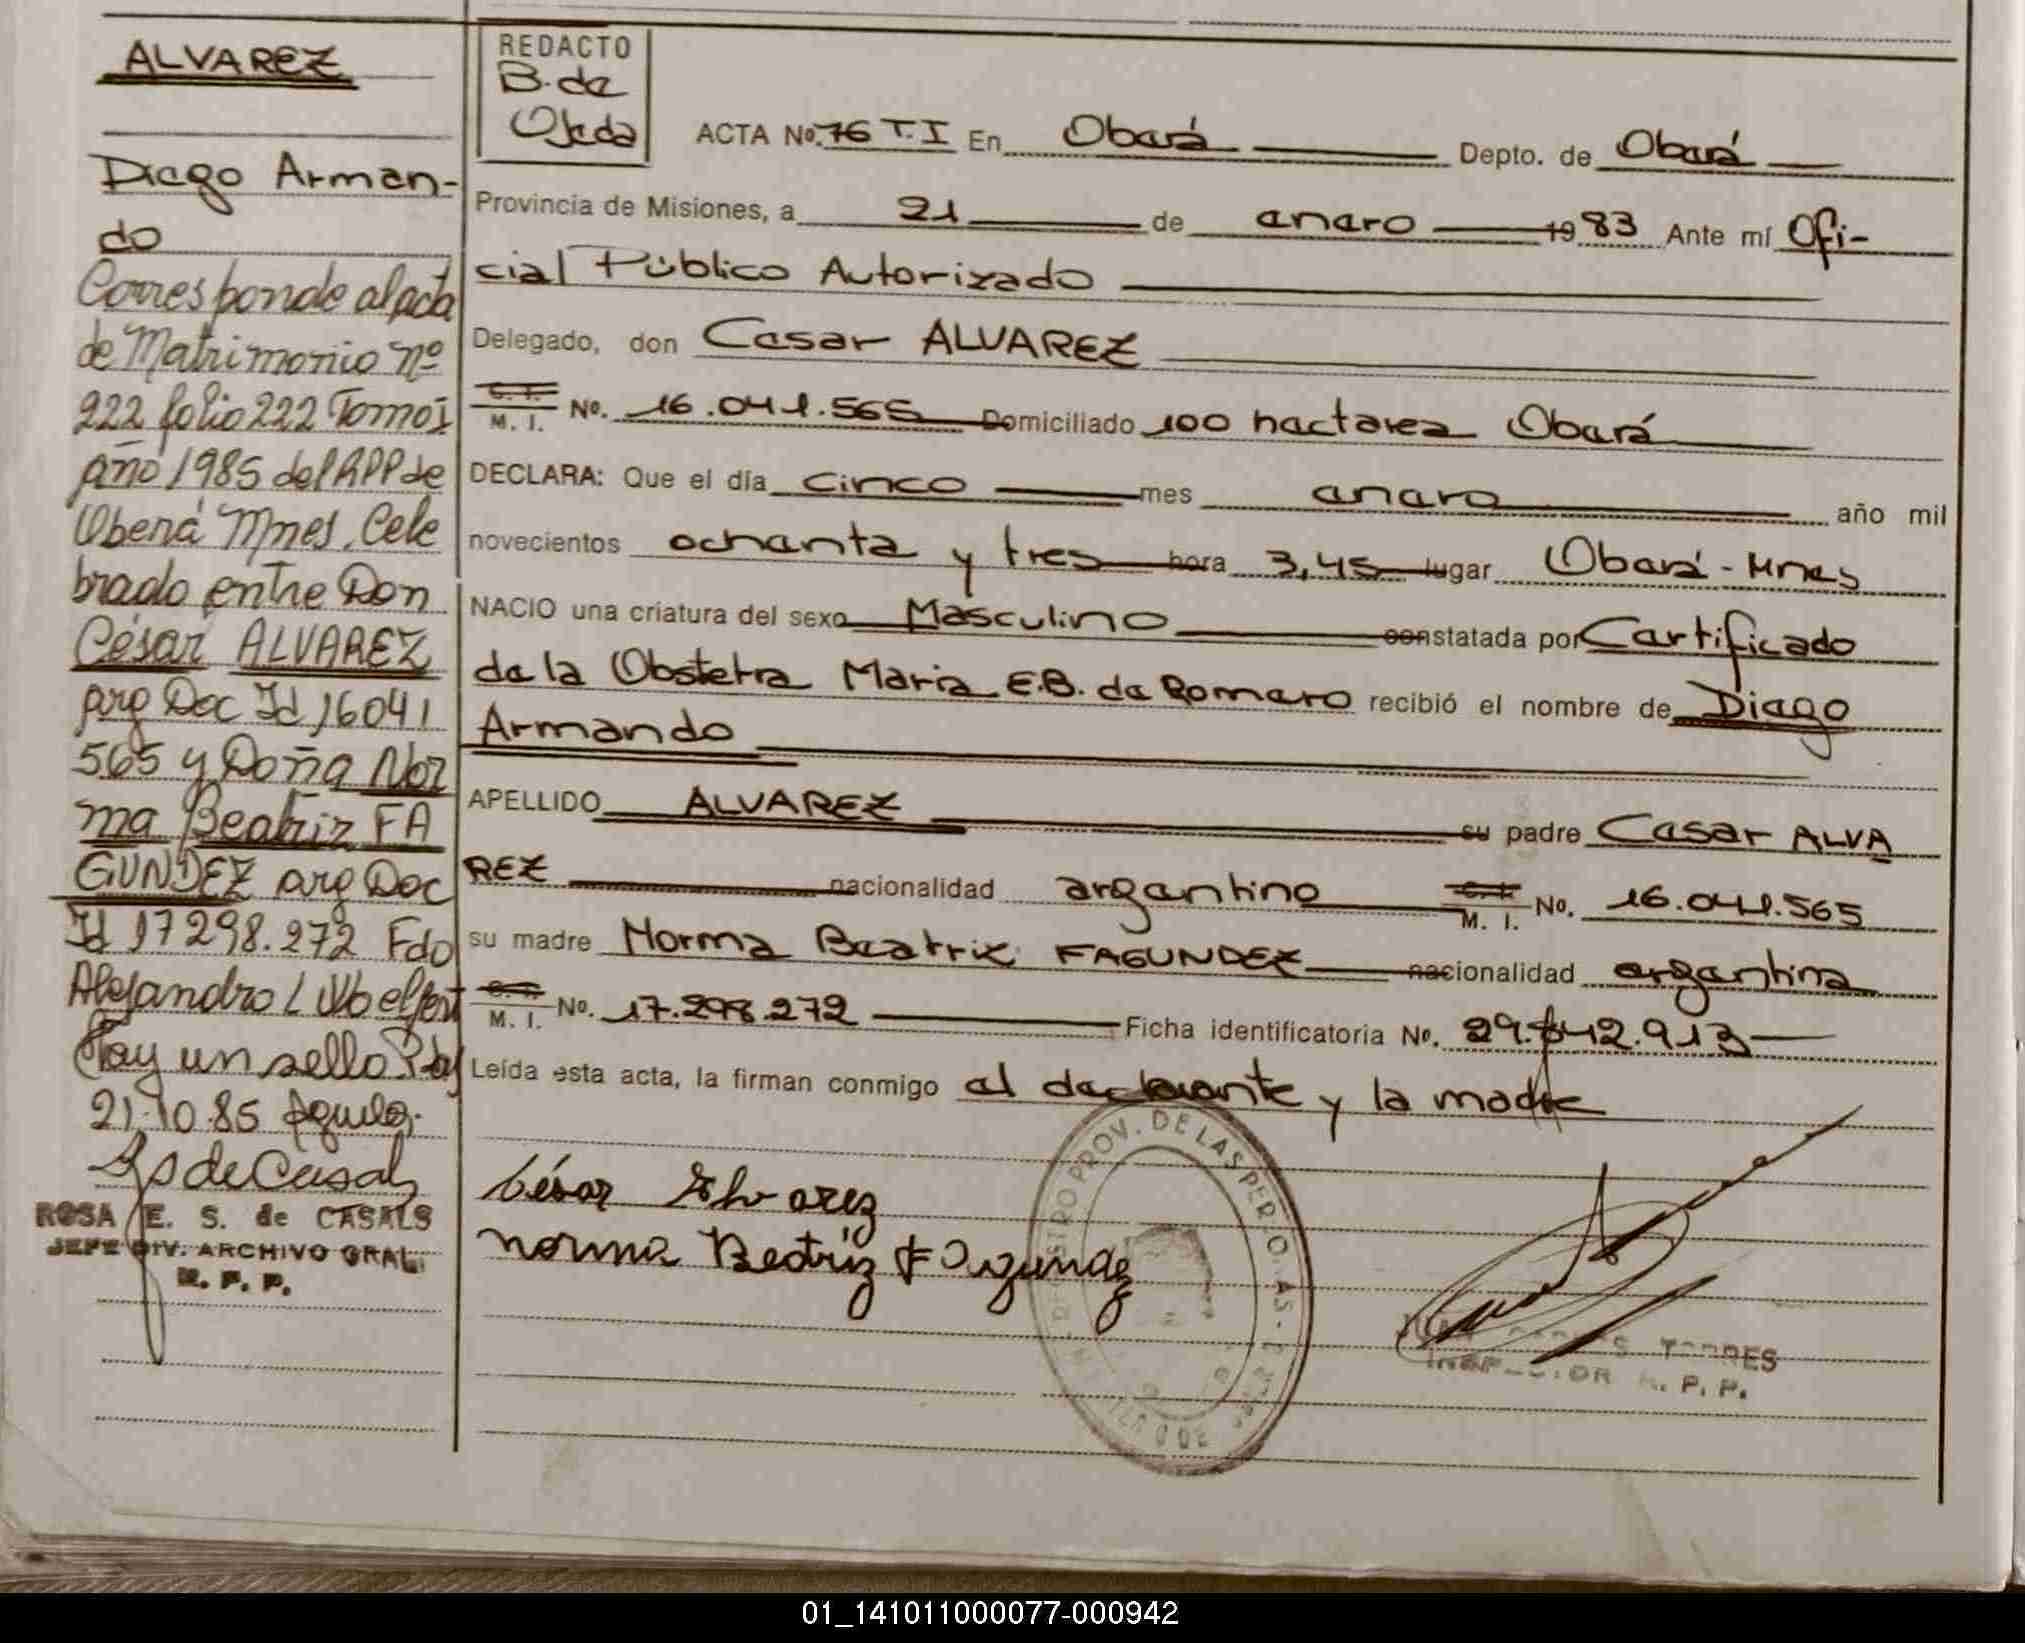 ALVAREZ
Diego Arman-
do
Corresponde al acta
de Matrimonio nº
222 folio 222 Tomo I
año 1985 del RPP de
Oberá Mnes. Cele
brado entre Don
César ALVAREZ
arg Doc Id 16041
565 y Doña Nor
ma Beatriz FA
GUNDEZ arg Doc
Id 17298.272 Fdo
Alejandro L
Hay un sello Pdas
21.10.85
de Casals
ROSA E. S. de CASALS
JEFE DIV. ARCHIVO GRAL.
R. P. P.
REDACTO
B. de
Ojeda
ACTA No. 76 T. I En Oberá Depto. de Oberá
Provincia de Misiones, a 21 de enero 1983 Ante mí Ofi-
cial Público Autorizado
Delegado, don Cesar ALVAREZ
C. I.
M. I. No. 16.041.565 Domiciliado 100 hectarea Oberá
DECLARA: Que el día cinco mes enero año mil
novecientos ochenta y tres hora 3,45 lugar Oberá - Mnes
NACIO una criatura del sexo Masculino constatada por Certificado
de la Obstetra Maria E.B. de Romero recibió el nombre de Diego
Armando
APELLIDO ALVAREZ su padre Cesar ALVA
REZ nacionalidad argentino C. I. M. I. No. 16.041.565
su madre Norma Beatriz FAGUNDEZ nacionalidad argentina
C. I.
M. I. No. 17.298.272 Ficha identificatoria No. 29.842.913
Leída esta acta, la firman conmigo el declarante y la madre
César Alvarez
Norma Beatriz Fagundez
REGISTRO PROV. DE LAS PERSONAS
JUAN CARLOS TORRES
INSPECTOR R. P. P.
01_141011000077-000942